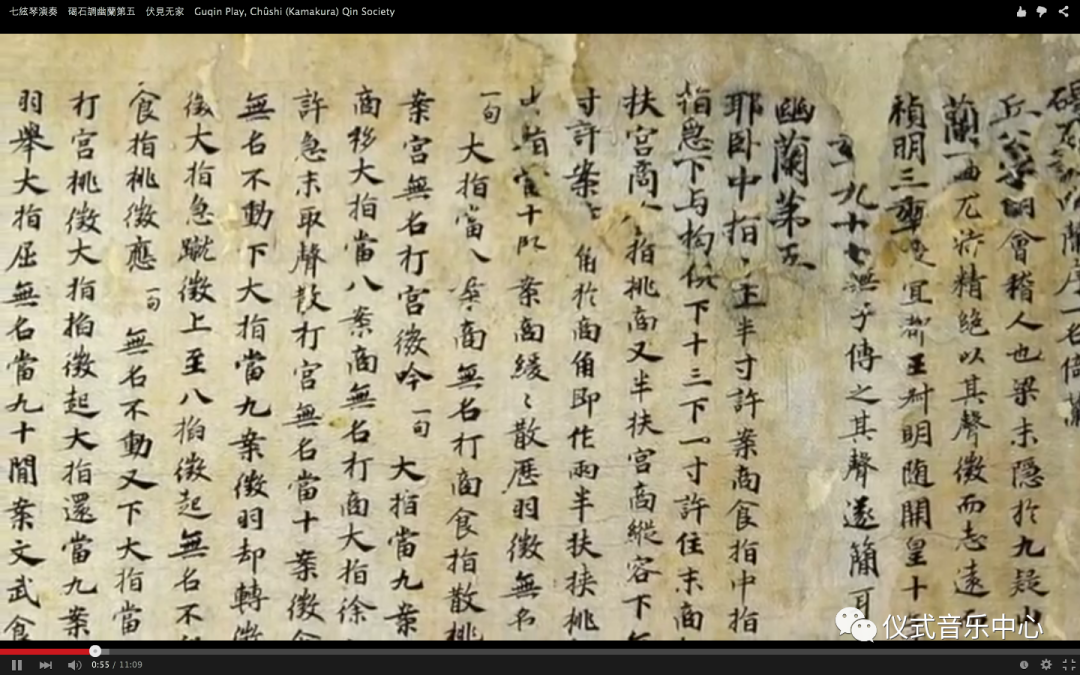 七絃琴演奏 碣石調幽蘭第五 伏見无家 Guqin Play, Chûshi (Kamakura) Qin Society
蘭序一名倚蘭
丘公字明會稽人也梁末隱於九疑山
蘭一曲尤特精絕以其聲微而志遠而
禎明三年 宜都王叔明随開皇十年
九十七無子傳之其聲遂簡耳
幽蘭第五
耶卧中指 半寸許案商食指中指
指急下与拘俱下十三下一寸許住末商
扶宮商 指挑商又半扶宮商縱容下
寸許案 角於商角即作兩半扶挾挑
指 宮十 案商緩〻散歷羽徵無名
一句 大指當八 案商無名打商食指散挑
案宮無名打宮徵吟 一句 大指當九案
商移大指當八案商無名打商大指徐
許急末取聲散打宮無名當十案徵食
無名不動下大指當九案徵羽却轉
徵大指急蹴徵上至八掐徵起無名不
食指挑徵應 一句 無名不動又下大指當
打宮挑徵大指掐徵起大指還當九案
羽舉大指屈無名當九十間案文武食
仪式音乐中心
0:55 / 11:09